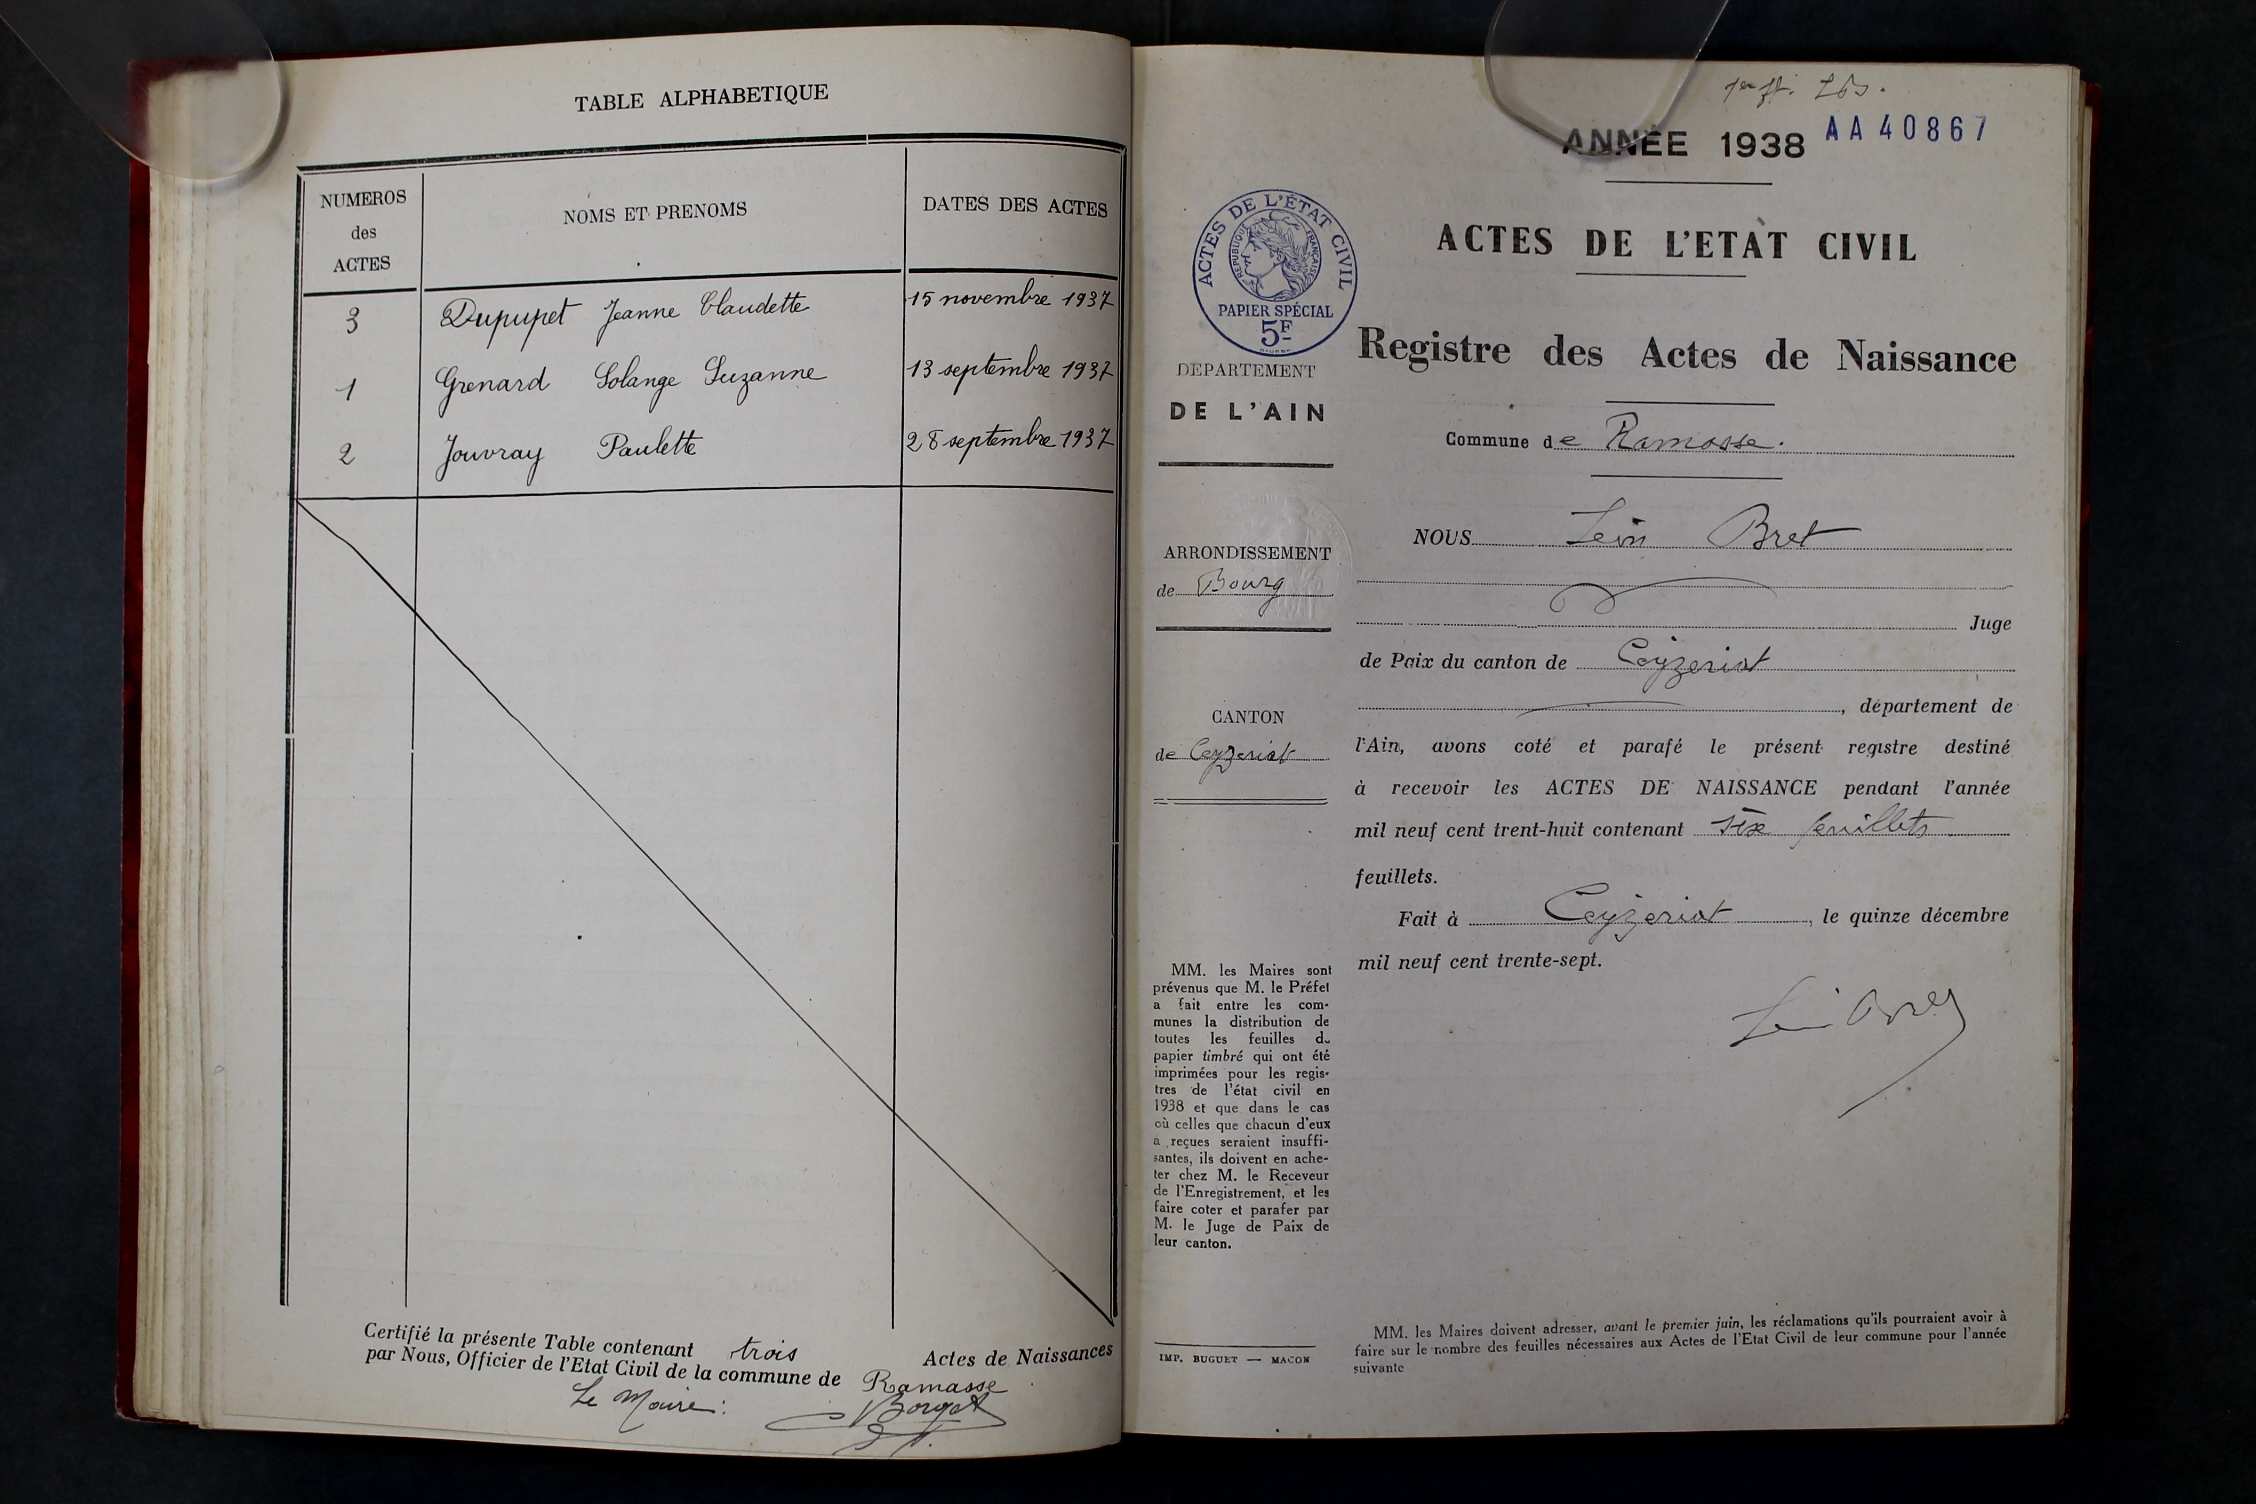 TABLE ALPHABETIQUE
NUMEROS
des
ACTES
NOMS ET PRENOMS
DATES DES ACTES
3 Dupupet Jeanne Claudette 15 novembre 1937
1 Grenard Solange Suzanne 13 septembre 1937
2 Jouvray Paulette 28 septembre 1937
Certifié la présente Table contenant trois Actes de Naissances
par Nous, Officier de l'Etat Civil de la commune de Ramasse
Le Maire:
ANNÉE 1938 AA40867
ACTES DE L'ETAT CIVIL
Registre des Actes de Naissance
Commune de Ramasse.
NOUS Léon Bret
Juge
de Paix du canton de Ceyzeriat
, département de
l'Ain, avons coté et parafé le présent registre destiné
à recevoir les ACTES DE NAISSANCE pendant l'année
mil neuf cent trent-huit contenant six feuillets
feuillets.
Fait à Ceyzeriat, le quinze décembre
mil neuf cent trente-sept.
ACTES DE L'ÉTAT CIVIL
RÉPUBLIQUE FRANÇAISE
PAPIER SPÉCIAL
5F
DEPARTEMENT
DE L'AIN
ARRONDISSEMENT
de Bourg
CANTON
de Ceyzeriat
MM. les Maires sont
prévenus que M. le Préfet
a fait entre les com-
munes la distribution de
toutes les feuilles de
papier timbré qui ont été
imprimées pour les regis-
tres de l'état civil en
1938 et que dans le cas
où celles que chacun d'eux
a reçues seraient insuffi-
santes, ils doivent en ache-
ter chez M. le Receveur
de l'Enregistrement, et les
faire coter et parafer par
M. le Juge de Paix de
leur canton.
IMP. BUGUET — MACON
MM. les Maires doivent adresser, avant le premier juin, les réclamations qu'ils pourraient avoir à
faire sur le nombre des feuilles nécessaires aux Actes de l'Etat Civil de leur commune pour l'année
suivante